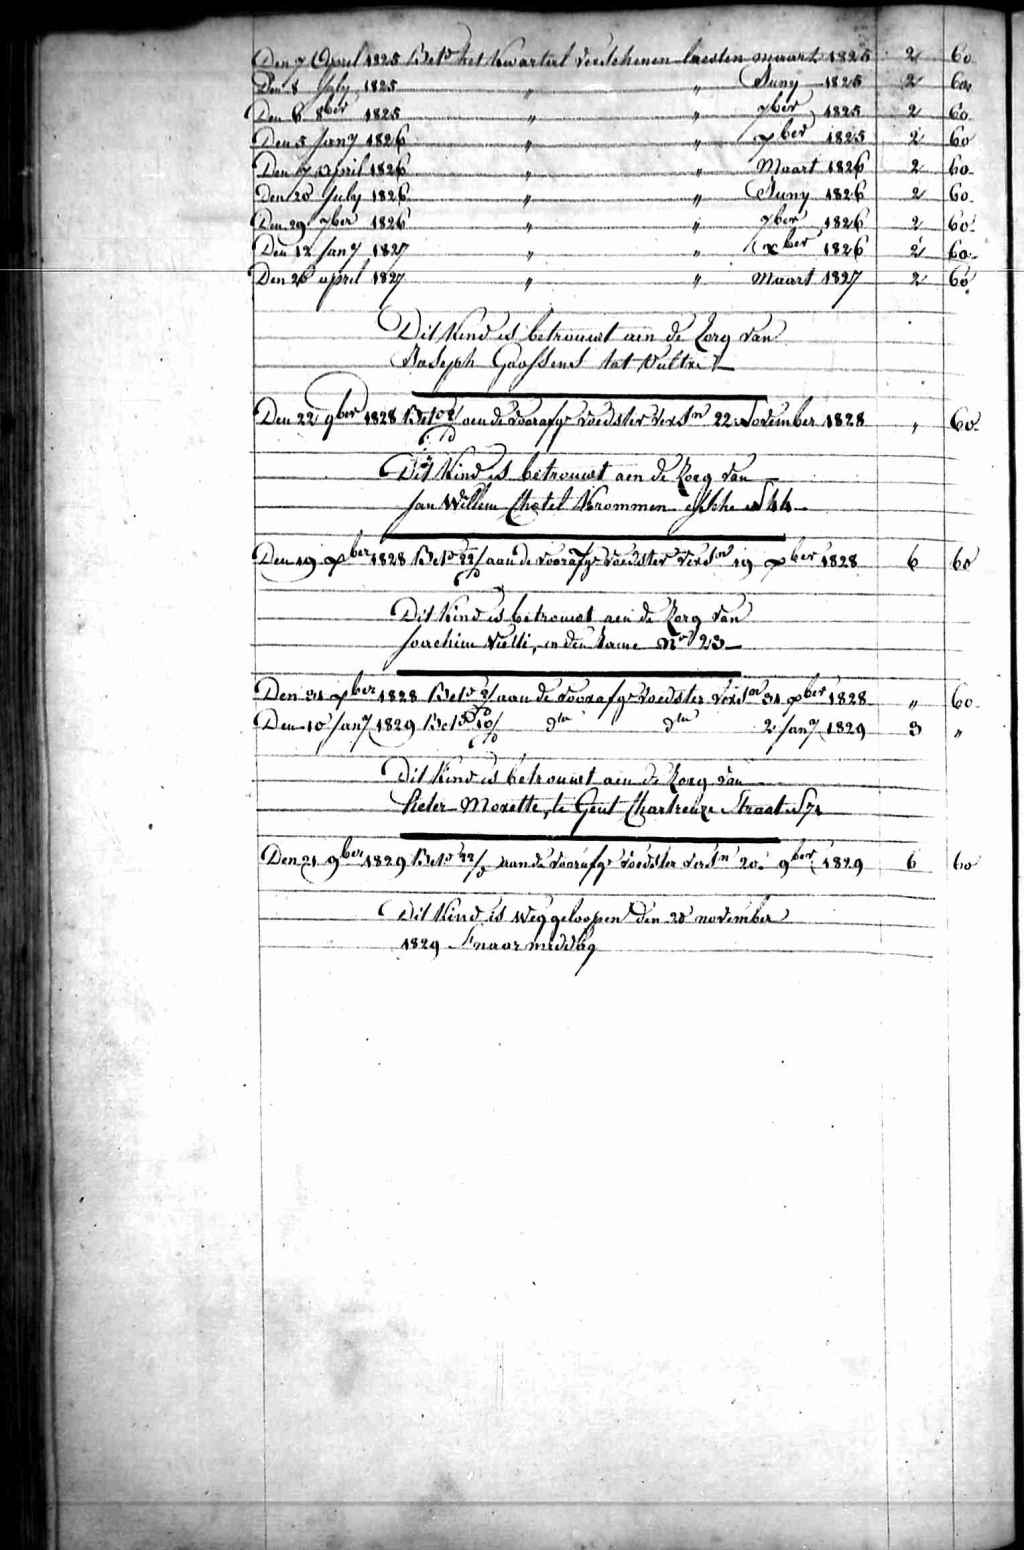 Den 7 April 1825 Bet.d het kwartael verschenen laesten maart 1825 2 60
Den 8 July 1825 " " Juny 1825 2 60
Den 6 8ber 1825 " " 7ber 1825 2 60
Den 5 Jany 1826 " " xber 1825 2 60
Den 7 april 1826 " " Maart 1826 2 60
Den 20 July 1826 " " Juny 1826 2 60
Den 29 7ber 1826 " " 7ber 1826 2 60
Den 12 Jany 1827 " " xber 1826 2 60
Den 26 april 1827 " " Maart 1827 2 60
Dit Kind is betrouwt aen de Zorg van
Joseph Goossens tot
Den 22 9ber 1828 aen de voorafge voedster vers.n 22 November 1828 " 60
Dit Kind is betrouwt aen de Zorg van
Jan Willem Chatel Krommen 44
Den 19 xber 1828 aan de voorafge voedster vers.n 19 xber 1828 6 60
Dit Kind is betrouwt aen de Zorg van
Joachim Vielli, in den N.o 23
Den 31 xber 1828 aan de voorafge voedster vers.n 31 xber 1828 " 60
Den 10 Jany 1829 dto dto 2 Jany 1829 3 "
Dit Kind is betrouwt aen de Zorg van
Pieter Morette, te Gent Chartreuze Straat 71
Den 21 9ber 1829 aan de voorafge voedster vers.n 20 9ber 1829 6 60
Dit Kind is weggeloopen den 20 november
1829 's naarmiddag